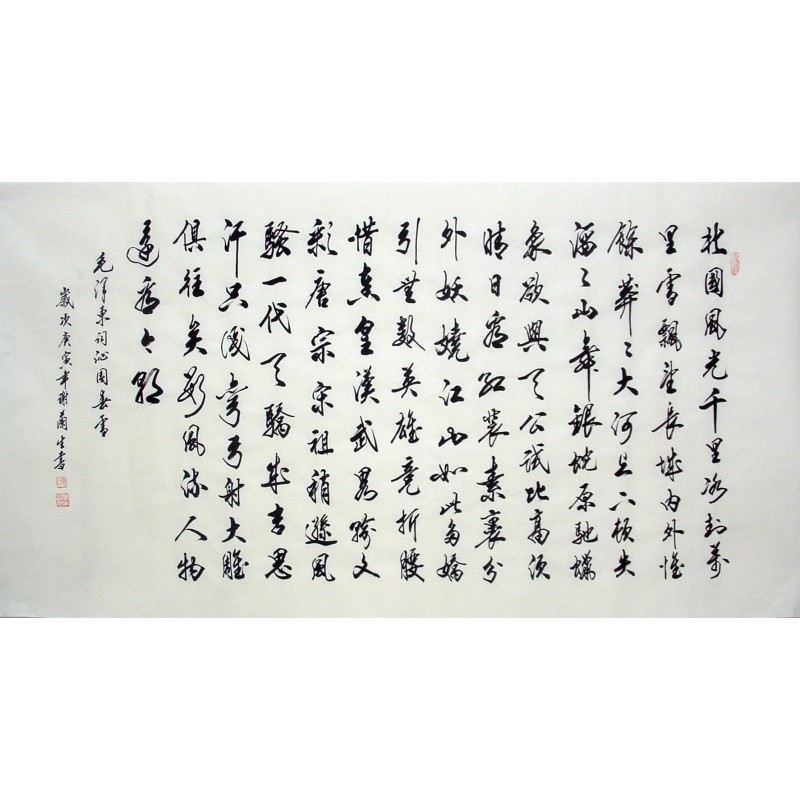 北國風光千里冰封萬
里雪飄望長城內外惟
餘莽〻大河上下頓失
滔〻山舞銀蛇原馳蠟
象欲與天公試比高須
晴日看紅裝素裹分
外妖嬈江山如此多嬌
引無數英雄競折腰
惜秦皇漢武略輸文
彩唐宗宋祖稍遜風
騷一代天驕成吉思
汗只識彎弓射大雕
俱往矣數風流人物
還看今朝
毛澤東詞沁園春雪
歲次庚寅年謝蘭生書